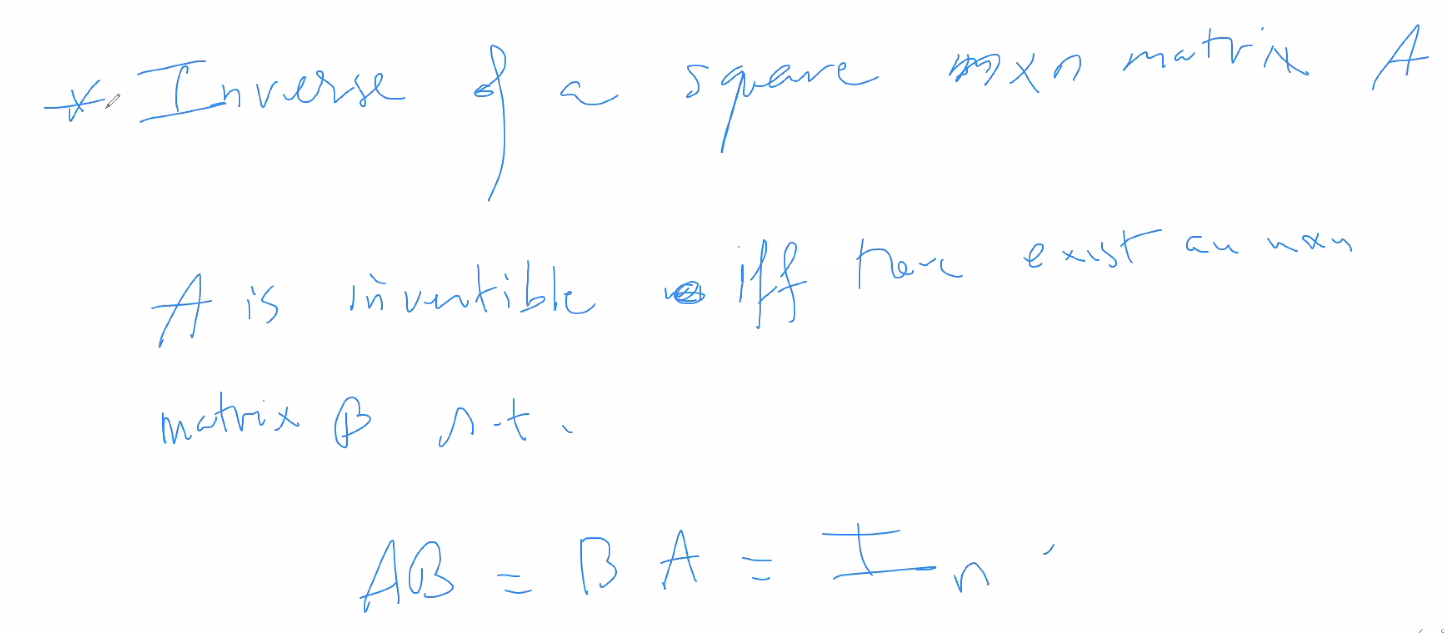 * Inverse of a square n x n matrix A
A is invertible iff there exist an nxn
matrix B s.t.
AB = BA = In.